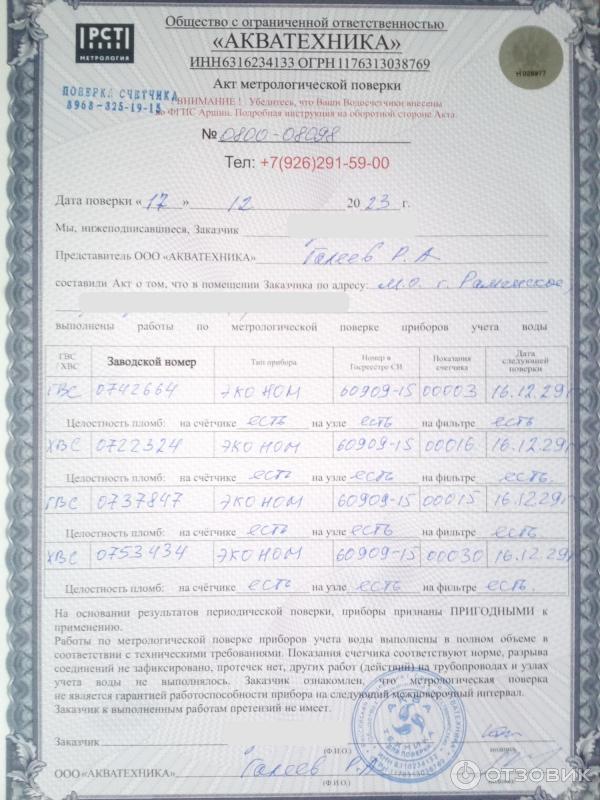 РСТ
МЕТРОЛОГИЯ
Общество с ограниченной ответственностью
«АКВАТЕХНИКА»
ИНН6316234133 ОГРН1176313038769
Акт метрологической поверки
N 028977
ПОВЕРКА СЧЕТЧИКА
8968-825-19-15
ВНИМАНИЕ ! Убедитесь, что Ваши Водосчетчики внесены
во ФГИС Аршин. Подробная инструкция на оборотной стороне Акта.
№ 0800-08098
Тел: +7(926)291-59-00
Дата поверки « 17 » 12 2023 г.
Мы, нижеподписавшиеся, Заказчик
Представитель ООО «АКВАТЕХНИКА» Галеев Р. А
составили Акт о том, что в помещении Заказчика по адресу: М.О. г. Раменское,
выполнены работы по метрологической поверке приборов учета воды
ГВС / ХВС Заводской номер Тип прибора Номер в Госреестре СИ Показания счетчика Дата следующей поверки
ГВС 0742664 ЭКОНОМ 60909-15 00003 16.12.29г
Целостность пломб: на счётчике есть на узле есть на фильтре есть
ХВС 0722324 ЭКОНОМ 60909-15 00016 16.12.29г
Целостность пломб: на счётчике есть на узле есть на фильтре есть.
ГВС 0737847 ЭКОНОМ 60909-15 00015 16.12.29г
Целостность пломб: на счётчике есть на узле есть на фильтре есть
ХВС 0753434 ЭКОНОМ 60909-15 00030 16.12.29г
Целостность пломб: на счётчике есть на узле есть на фильтре есть.
На основании результатов периодической поверки, приборы признаны ПРИГОДНЫМИ к
применению.
Работы по метрологической поверке приборов учета воды выполнены в полном объеме в
соответствии с техническими требованиями. Показания счетчика соответствуют норме, разрыва
соединений не зафиксировано, протечек нет, других работ (действий) на трубопроводах и узлах
учета воды не выполнялось. Заказчик ознакомлен, что метрологическая поверка
не является гарантией работоспособности прибора на следующий межповерочный интервал.
Заказчик к выполненным работам претензий не имеет.
АКВА
ТЕХНИКА
ДЛЯ ПОВЕРКИ
Заказчик
(Ф.И.О.) подпись
ООО «АКВАТЕХНИКА» Галеев Р. А
(Ф.И.О.)
ОТЗОВИК